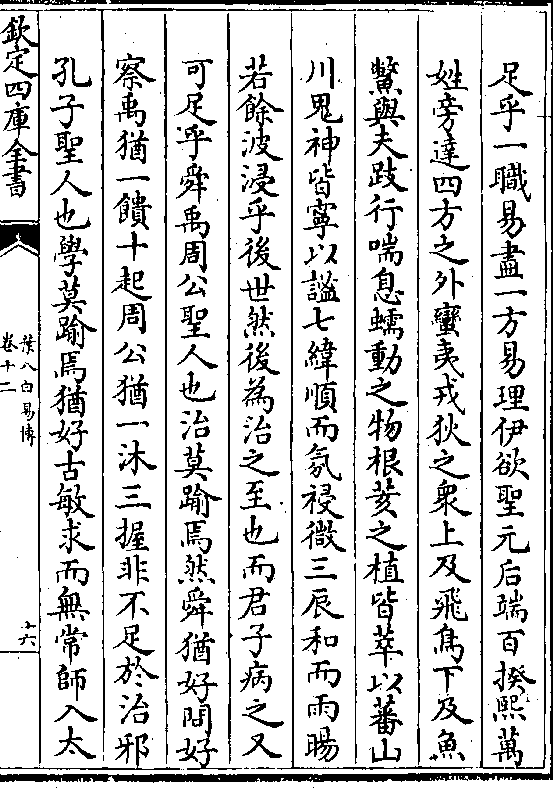 足乎一職易盡一方易理伊欲聖元后端百揆熙萬
姓旁達四方之外蠻夷戎狄之衆上及飛鳥下及魚
鱉與夫跂行喘息蠕動之物根荄之植皆萃以蕃山
川鬼神皆寧以謐七緯順而氛祲微三辰和而雨暘
若餘波浸乎後世然後為治之至也而君子病之又
可足乎舜禹周公聖人也治莫踰焉然舜猶好問好
察禹猶一饋十起周公猶一沐三握非不足於治邪
孔子聖人也學莫踰焉猶好古敏求而無常師入太
欽定四庫全書
葉八白易傳
卷十二
十六